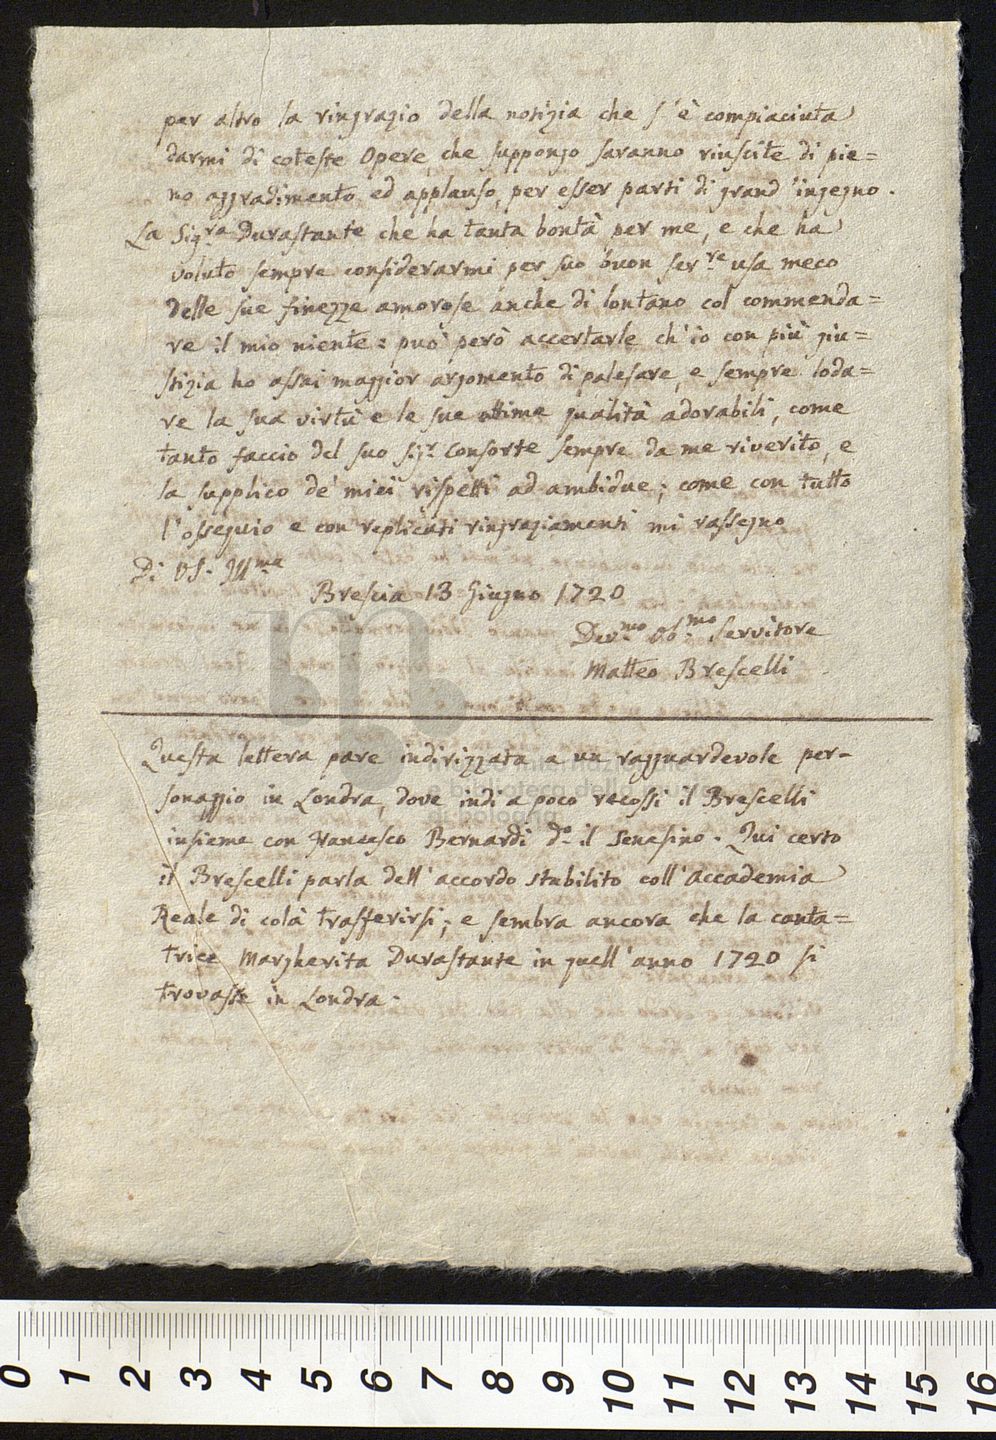 per altro la ringrazio della notizia che s'è compiaciuta
darmi di coteste Opere, che suppongo saranno riuscite di pie=
no aggradimento ed applauso, per esser parti di grand'ingegno.
La Sig.ra Durastante che ha tanta bontà per me, e che ha
voluto sempre considerarmi per suo buon ser.re usa meco
delle sue finezze amorose anche di lontano col commenda=
re il mio niente: può però accertarle ch'io con più giu=
stizia ho assai maggior argomento di palesare, e sempre loda=
re la sua virtù e le sue ottime qualità adorabili, come
tanto faccio del suo sig.r Consorte sempre da me riverito, e
la supplico de' miei rispetti ad ambidue; come con tutto
l'ossequio e con replicati ringraziamenti mi rassegno
Di VS. Ill.ma
Brescia 13 Giugno 1720
Dev.mo Ob.mo Servitore
Matteo Brescelli
Questa lettera pare indirizzata a un ragguardevole per-
sonaggio in Londra, dove indi a poco recossi il Brescelli
insieme con Francesco Bernardi d.o il Senesino. Qui certo
il Brescelli parla dell'accordo stabilito coll'Accademia
Reale di colà trasferirsi; e sembra ancora che la canta=
trice Margherita Durastante in quell'anno 1720 si
trovasse in Londra.
museo internazionale
e biblioteca della musica
di bologna
0 1 2 3 4 5 6 7 8 9 10 11 12 13 14 15 16